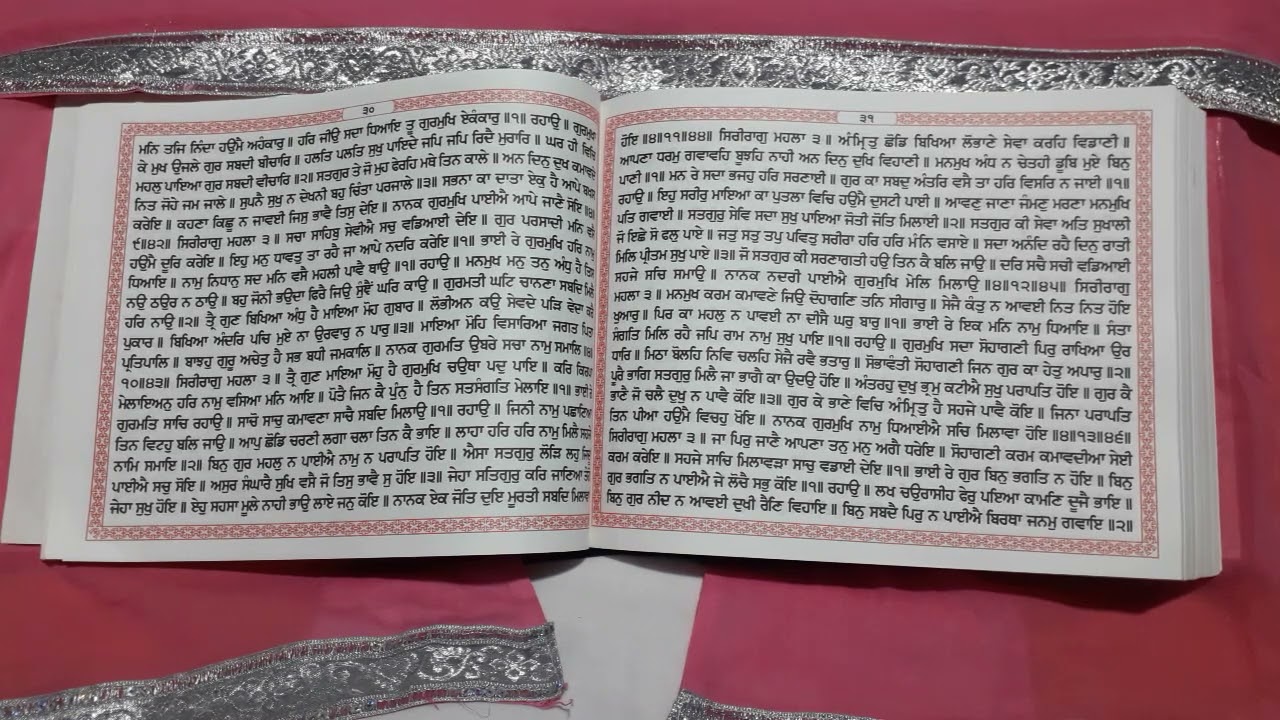 ੩੦
ਮਨਿ ਤਜਿ ਨਿੰਦਾ ਹਉਮੈ ਅਹੰਕਾਰੁ ॥ ਹਰਿ ਜੀਉ ਸਦਾ ਧਿਆਇ ਤੂ ਗੁਰਮੁਖਿ ਏਕੰਕਾਰੁ ॥੧॥ ਰਹਾਉ ॥ ਗੁਰਮੁਖਾ
ਕੇ ਮੁਖ ਉਜਲੇ ਗੁਰ ਸਬਦੀ ਬੀਚਾਰਿ ॥ ਹਲਤਿ ਪਲਤਿ ਸੁਖੁ ਪਾਇਦੇ ਜਪਿ ਜਪਿ ਰਿਦੈ ਮੁਰਾਰਿ ॥ ਘਰ ਹੀ ਵਿਚਿ
ਮਹਲੁ ਪਾਇਆ ਗੁਰ ਸਬਦੀ ਵੀਚਾਰਿ ॥੨॥ ਸਤਗੁਰ ਤੇ ਜੋ ਮੁਹ ਫੇਰਹਿ ਮਥੇ ਤਿਨ ਕਾਲੇ ॥ ਅਨ ਦਿਨੁ ਦੁਖ ਕਮਾਵਦੇ
ਨਿਤ ਜੋਹੇ ਜਮ ਜਾਲੇ ॥ ਸੁਪਨੈ ਸੁਖੁ ਨ ਦੇਖਨੀ ਬਹੁ ਚਿੰਤਾ ਪਰਜਾਲੇ ॥੩॥ ਸਭਨਾ ਕਾ ਦਾਤਾ ਏਕੁ ਹੈ ਆਪੇ ਬਖਸ
ਕਰੇਇ ॥ ਕਹਣਾ ਕਿਛੂ ਨ ਜਾਵਈ ਜਿਸੁ ਭਾਵੈ ਤਿਸੁ ਦੇਇ ॥ ਨਾਨਕ ਗੁਰਮੁਖਿ ਪਾਈਐ ਆਪੇ ਜਾਣੈ ਸੋਇ ॥੪॥
੯॥੪੨॥ ਸਿਰੀਰਾਗੁ ਮਹਲਾ ੩ ॥ ਸਚਾ ਸਾਹਿਬੁ ਸੇਵੀਐ ਸਚੁ ਵਡਿਆਈ ਦੇਇ ॥ ਗੁਰ ਪਰਸਾਦੀ ਮਨਿ ਵਸੈ
ਹਉਮੈ ਦੂਰਿ ਕਰੇਇ ॥ ਇਹੁ ਮਨੁ ਧਾਵਤੁ ਤਾ ਰਹੈ ਜਾ ਆਪੇ ਨਦਰਿ ਕਰੇਇ ॥੧॥ ਭਾਈ ਰੇ ਗੁਰਮੁਖਿ ਹਰਿ ਨਾਮੁ
ਧਿਆਇ ॥ ਨਾਮੁ ਨਿਧਾਨੁ ਸਦ ਮਨਿ ਵਸੈ ਮਹਲੀ ਪਾਵੈ ਥਾਉ ॥੧॥ ਰਹਾਉ ॥ ਮਨਮੁਖ ਮਨੁ ਤਨੁ ਅੰਧੁ ਹੈ ਤਿਸ
ਨਉ ਠਉਰ ਨ ਠਾਉ ॥ ਬਹੁ ਜੋਨੀ ਭਉਦਾ ਫਿਰੈ ਜਿਉ ਸੁੰਞੈਂ ਘਰਿ ਕਾਉ ॥ ਗੁਰਮਤੀ ਘਟਿ ਚਾਨਣਾ ਸਬਦਿ ਮਿਲੈ
ਹਰਿ ਨਾਉ ॥੨॥ ਤ੍ਰੈ ਗੁਣ ਬਿਖਿਆ ਅੰਧੁ ਹੈ ਮਾਇਆ ਮੋਹ ਗੁਬਾਰ ॥ ਲੋਭੀ ਅਨ ਕਉ ਸੇਵਦੇ ਪੜਿ ਵੇਦਾ ਕਰੈ
ਪੂਕਾਰ ॥ ਬਿਖਿਆ ਅੰਦਰਿ ਪਚਿ ਮੁਏ ਨਾ ਉਰਵਾਰੁ ਨ ਪਾਰੁ ॥੩॥ ਮਾਇਆ ਮੋਹਿ ਵਿਸਾਰਿਆ ਜਗਤ ਪਿਤਾ
ਪ੍ਰਤਿਪਾਲਿ ॥ ਬਾਝਹੁ ਗੁਰੂ ਅਚੇਤੁ ਹੈ ਸਭ ਬਧੀ ਜਮਕਾਲਿ ॥ ਨਾਨਕ ਗੁਰਮਤਿ ਉਬਰੇ ਸਚਾ ਨਾਮੁ ਸਮਾਲਿ ॥੪॥
੧੦॥੪੩॥ ਸਿਰੀਰਾਗੁ ਮਹਲਾ ੩ ॥ ਤ੍ਰੈ ਗੁਣ ਮਾਇਆ ਮੋਹੁ ਹੈ ਗੁਰਮੁਖਿ ਚਉਥਾ ਪਦੁ ਪਾਇ ॥ ਕਰਿ ਕਿਰਪਾ
ਮੇਲਾਇਅਨੁ ਹਰਿ ਨਾਮੁ ਵਸਿਆ ਮਨਿ ਆਇ ॥ ਪੋਤੈ ਜਿਨ ਕੈ ਪੁੰਨੁ ਹੈ ਤਿਨ ਸਤਸੰਗਤਿ ਮੇਲਾਇ ॥੧॥ ਭਾਈ ਰੇ
ਗੁਰਮਤਿ ਸਾਚਿ ਰਹਾਉ ॥ ਸਾਚੋ ਸਾਚੁ ਕਮਾਵਣਾ ਸਾਚੈ ਸਬਦਿ ਮਿਲਾਉ ॥੧॥ ਰਹਾਉ ॥ ਜਿਨੀ ਨਾਮੁ ਪਛਾਣਿਆ
ਤਿਨ ਵਿਟਹੁ ਬਲਿ ਜਾਉ ॥ ਆਪੁ ਛੋਡਿ ਚਰਣੀ ਲਗਾ ਚਲਾ ਤਿਨ ਕੈ ਭਾਇ ॥ ਲਾਹਾ ਹਰਿ ਹਰਿ ਨਾਮੁ ਮਿਲੈ ਸਹਜੇ
ਨਾਮਿ ਸਮਾਇ ॥੨॥ ਬਿਨੁ ਗੁਰ ਮਹਲੁ ਨ ਪਾਈਐ ਨਾਮੁ ਨ ਪਰਾਪਤਿ ਹੋਇ ॥ ਐਸਾ ਸਤਗੁਰੁ ਲੋੜਿ ਲਹੁ ਜਿਦੂ
ਪਾਈਐ ਸਚੁ ਸੋਇ ॥ ਅਸੁਰ ਸੰਘਾਰੈ ਸੁਖਿ ਵਸੈ ਜੋ ਤਿਸੁ ਭਾਵੈ ਸੁ ਹੋਇ ॥੩॥ ਜੇਹਾ ਸਤਿਗੁਰੁ ਕਰਿ ਜਾਣਿਆ ਤੇਹੋ
ਜੇਹਾ ਸੁਖੁ ਹੋਇ ॥ ਏਹੁ ਸਹਸਾ ਮੂਲੇ ਨਾਹੀ ਭਾਉ ਲਾਏ ਜਨੁ ਕੋਇ ॥ ਨਾਨਕ ਏਕ ਜੋਤਿ ਦੁਇ ਮੂਰਤੀ ਸਬਦਿ ਮਿਲਾਵਾ
੩੧
ਹੋਇ ॥੪॥੧੧॥੪੪॥ ਸਿਰੀਰਾਗੁ ਮਹਲਾ ੩ ॥ ਅੰਮ੍ਰਿਤੁ ਛੋਡਿ ਬਿਖਿਆ ਲੋਭਾਣੇ ਸੇਵਾ ਕਰਹਿ ਵਿਡਾਣੀ ॥
ਆਪਣਾ ਧਰਮੁ ਗਵਾਵਹਿ ਬੂਝਹਿ ਨਾਹੀ ਅਨ ਦਿਨੁ ਦੁਖਿ ਵਿਹਾਣੀ ॥ ਮਨਮੁਖ ਅੰਧ ਨ ਚੇਤਹੀ ਡੂਬਿ ਮੁਏ ਬਿਨੁ
ਪਾਣੀ ॥੧॥ ਮਨ ਰੇ ਸਦਾ ਭਜਹੁ ਹਰਿ ਸਰਣਾਈ ॥ ਗੁਰ ਕਾ ਸਬਦੁ ਅੰਤਰਿ ਵਸੈ ਤਾ ਹਰਿ ਵਿਸਰਿ ਨ ਜਾਈ ॥੧॥
ਰਹਾਉ ॥ ਇਹੁ ਸਰੀਰੁ ਮਾਇਆ ਕਾ ਪੁਤਲਾ ਵਿਚਿ ਹਉਮੈ ਦੁਸਟੀ ਪਾਈ ॥ ਆਵਣੁ ਜਾਣਾ ਜੰਮਣੁ ਮਰਣਾ ਮਨਮੁਖਿ
ਪਤਿ ਗਵਾਈ ॥ ਸਤਗੁਰੁ ਸੇਵਿ ਸਦਾ ਸੁਖੁ ਪਾਇਆ ਜੋਤੀ ਜੋਤਿ ਮਿਲਾਈ ॥੨॥ ਸਤਗੁਰ ਕੀ ਸੇਵਾ ਅਤਿ ਸੁਖਾਲੀ
ਜੋ ਇਛੇ ਸੋ ਫਲੁ ਪਾਏ ॥ ਜਤੁ ਸਤੁ ਤਪੁ ਪਵਿਤੁ ਸਰੀਰਾ ਹਰਿ ਹਰਿ ਮੰਨਿ ਵਸਾਏ ॥ ਸਦਾ ਅਨੰਦਿ ਰਹੈ ਦਿਨੁ ਰਾਤੀ
ਮਿਲਿ ਪ੍ਰੀਤਮ ਸੁਖੁ ਪਾਏ ॥੩॥ ਜੋ ਸਤਗੁਰ ਕੀ ਸਰਣਾਗਤੀ ਹਉ ਤਿਨ ਕੈ ਬਲਿ ਜਾਉ ॥ ਦਰਿ ਸਚੈ ਸਚੀ ਵਡਿਆਈ
ਸਹਜੇ ਸਚਿ ਸਮਾਉ ॥ ਨਾਨਕ ਨਦਰੀ ਪਾਈਐ ਗੁਰਮੁਖਿ ਮੇਲਿ ਮਿਲਾਉ ॥੪॥੧੨॥੪੫॥ ਸਿਰੀਰਾਗੁ
ਮਹਲਾ ੩ ॥ ਮਨਮੁਖ ਕਰਮ ਕਮਾਵਣੇ ਜਿਉ ਦੋਹਾਗਣਿ ਤਨਿ ਸੀਗਾਰੁ ॥ ਸੇਜੈ ਕੰਤੁ ਨ ਆਵਈ ਨਿਤ ਨਿਤ ਹੋਇ
ਖੁਆਰੁ ॥ ਪਿਰ ਕਾ ਮਹਲੁ ਨ ਪਾਵਈ ਨਾ ਦੀਸੈ ਘਰੁ ਬਾਰੁ ॥੧॥ ਭਾਈ ਰੇ ਇਕ ਮਨਿ ਨਾਮੁ ਧਿਆਇ ॥ ਸੰਤਾ
ਸੰਗਤਿ ਮਿਲਿ ਰਹੈ ਜਪਿ ਰਾਮ ਨਾਮੁ ਸੁਖੁ ਪਾਇ ॥੧॥ ਰਹਾਉ ॥ ਗੁਰਮੁਖਿ ਸਦਾ ਸੋਹਾਗਣੀ ਪਿਰੁ ਰਾਖਿਆ ਉਰ
ਧਾਰਿ ॥ ਮਿਠਾ ਬੋਲਹਿ ਨਿਵਿ ਚਲਹਿ ਸੇਜੈ ਰਵੈ ਭਤਾਰੁ ॥ ਸੋਭਾਵੰਤੀ ਸੋਹਾਗਣੀ ਜਿਨ ਗੁਰ ਕਾ ਹੇਤੁ ਅਪਾਰੁ ॥੨॥
ਪੂਰੈ ਭਾਗਿ ਸਤਗੁਰੁ ਮਿਲੈ ਜਾ ਭਾਗੈ ਕਾ ਉਦਉ ਹੋਇ ॥ ਅੰਤਰਹੁ ਦੁਖੁ ਭ੍ਰਮੁ ਕਟੀਐ ਸੁਖੁ ਪਰਾਪਤਿ ਹੋਇ ॥ ਗੁਰ ਕੈ
ਭਾਣੈ ਜੋ ਚਲੈ ਦੁਖੁ ਨ ਪਾਵੈ ਕੋਇ ॥੩॥ ਗੁਰ ਕੇ ਭਾਣੇ ਵਿਚਿ ਅੰਮ੍ਰਿਤੁ ਹੈ ਸਹਜੇ ਪਾਵੈ ਕੋਇ ॥ ਜਿਨਾ ਪਰਾਪਤਿ
ਤਿਨ ਪੀਆ ਹਉਮੈ ਵਿਚਹੁ ਖੋਇ ॥ ਨਾਨਕ ਗੁਰਮੁਖਿ ਨਾਮੁ ਧਿਆਈਐ ਸਚਿ ਮਿਲਾਵਾ ਹੋਇ ॥੪॥੧੩॥੪੬॥
ਸਿਰੀਰਾਗੁ ਮਹਲਾ ੩ ॥ ਜਾ ਪਿਰੁ ਜਾਣੈ ਆਪਣਾ ਤਨੁ ਮਨੁ ਅਗੈ ਧਰੇਇ ॥ ਸੋਹਾਗਣੀ ਕਰਮ ਕਮਾਵਦੀਆ ਸੇਈ
ਕਰਮ ਕਰੇਇ ॥ ਸਹਜੇ ਸਾਚਿ ਮਿਲਾਵੜਾ ਸਾਚੁ ਵਡਾਈ ਦੇਇ ॥੧॥ ਭਾਈ ਰੇ ਗੁਰ ਬਿਨੁ ਭਗਤਿ ਨ ਹੋਇ ॥ ਬਿਨੁ
ਗੁਰ ਭਗਤਿ ਨ ਪਾਈਐ ਜੇ ਲੋਚੈ ਸਭੁ ਕੋਇ ॥੧॥ ਰਹਾਉ ॥ ਲਖ ਚਉਰਾਸੀਹ ਫੇਰੁ ਪਇਆ ਕਾਮਣਿ ਦੂਜੈ ਭਾਇ ॥
ਬਿਨੁ ਗੁਰ ਨੀਦ ਨ ਆਵਈ ਦੁਖੀ ਰੈਣਿ ਵਿਹਾਇ ॥ ਬਿਨੁ ਸਬਦੈ ਪਿਰੁ ਨ ਪਾਈਐ ਬਿਰਥਾ ਜਨਮੁ ਗਵਾਇ ॥੨॥